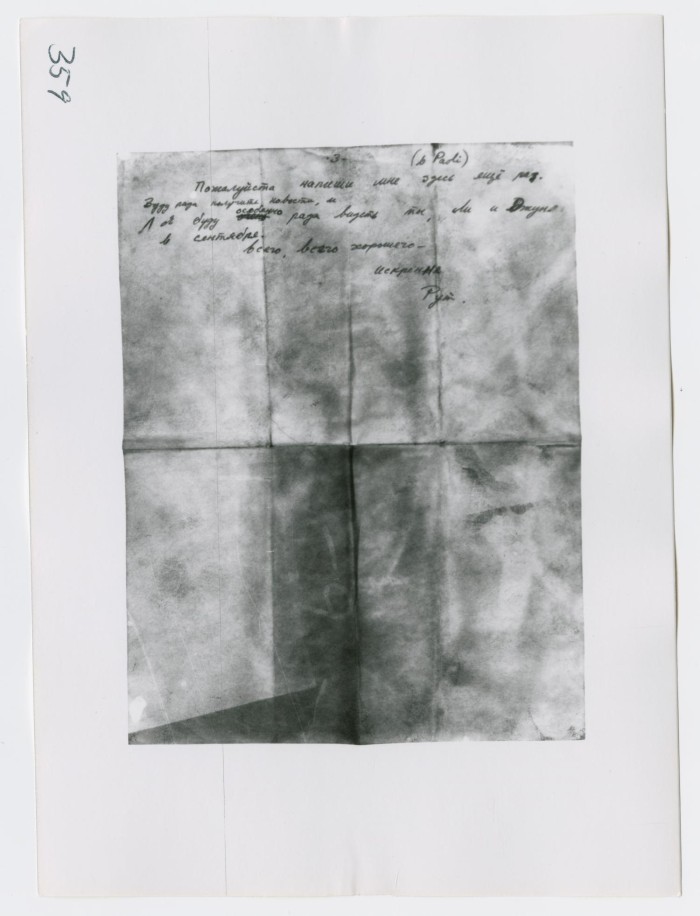 359
-3- (в Paoli)
Пожалуйста напиши мне здесь ещё раз.
Буду рада получить новости, и
буду особенно рада видеть ты, Ли и Джуна
в сентябре.
Всего, всего хорошего -
искренне
Рут.